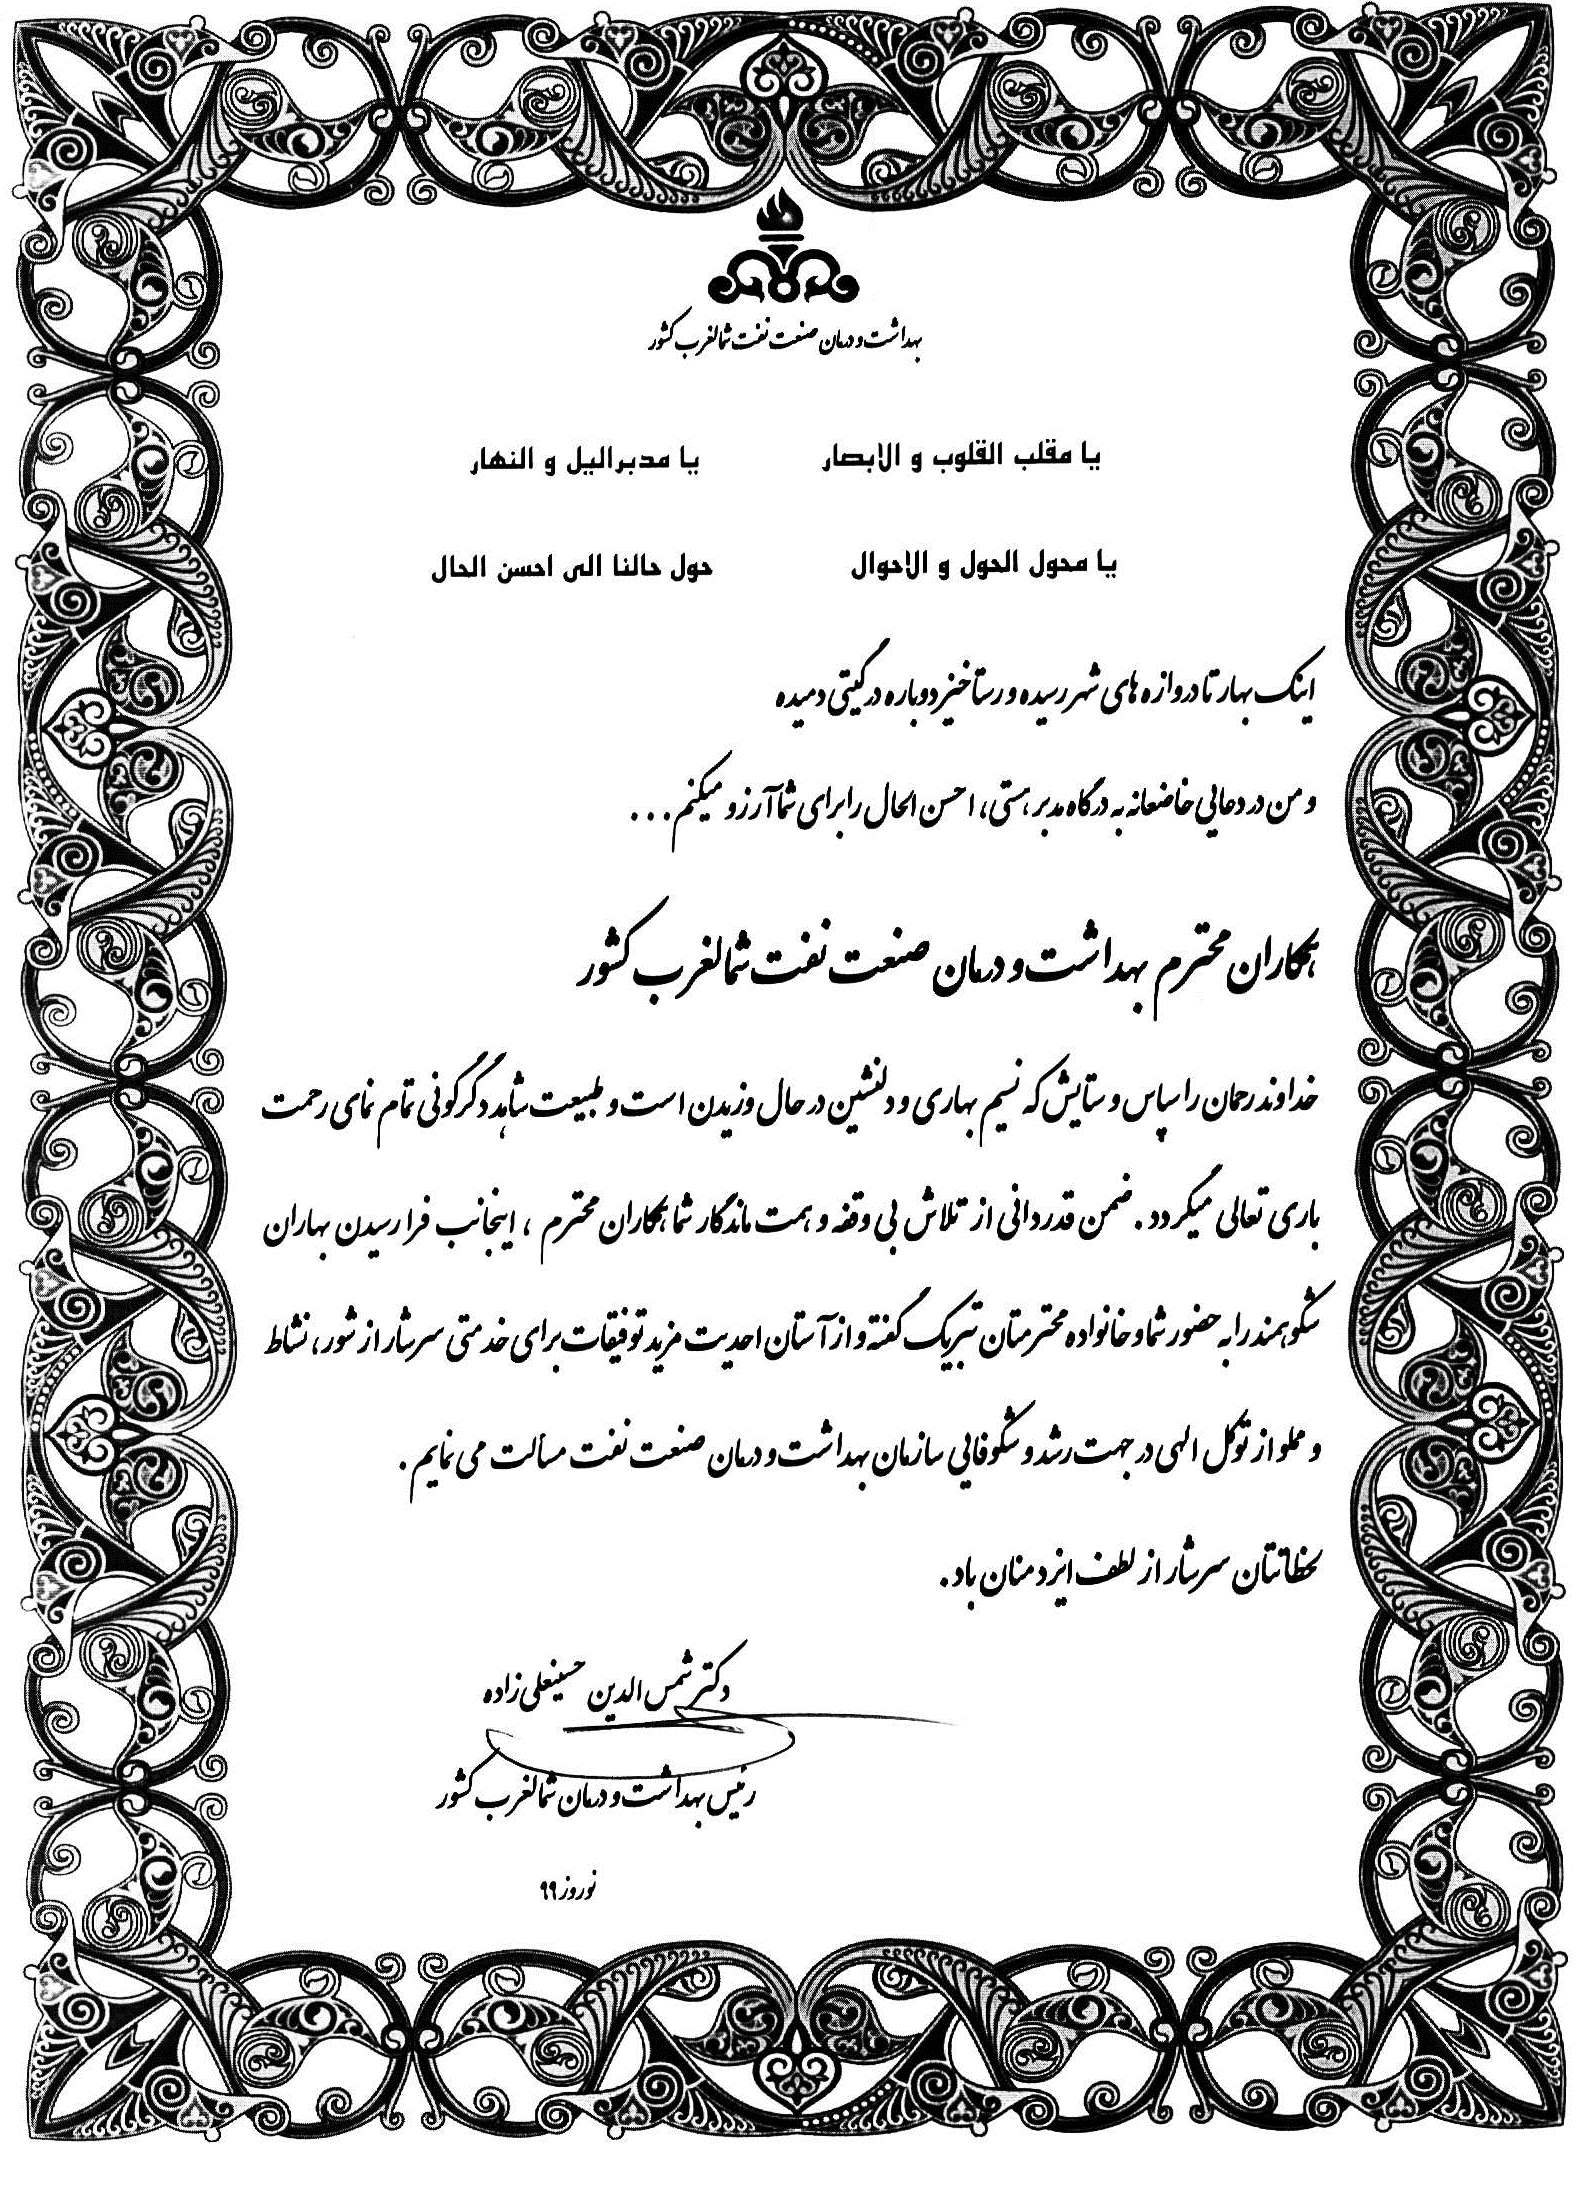 بهداشت و درمان صنعت نفت شمالغرب کشور
یا مقلب القلوب و الابصار یا مدبر الیل و النهار
یا محول الحول و الاحوال حول حالنا الی احسن الحال
اینک بهار تا دروازه های شهر رسیده و رستاخیز دوباره در گیتی دمیده
و من در دعایی خاضعانه به درگاه مدبر هستی، احسن الحال را برای شما آرزو میکنم...
همکاران محترم بهداشت و درمان صنعت نفت شمالغرب کشور
خداوند رحمان را سپاس و ستایش که نسیم بهاری و دلنشین در حال وزیدن است و طبیعت شاهد دگرگونی تمام نمای رحمت
باری تعالی میگردد. ضمن قدردانی از تلاش بی وقفه و همت ماندگار شما همکاران محترم ، اینجانب فرا رسیدن بهاران
شکوهمند را به حضور شما و خانواده محترمتان تبریک گفته و از آستان احدیت مزید توفیقات برای خدمتی سرشار از شور، نشاط
و مملو از توکل الهی در جهت رشد و شکوفایی سازمان بهداشت و درمان صنعت نفت مسألت می نمایم.
لحظاتتان سرشار از لطف ایزد منان باد.
دکتر شمس الدین حسینعلی زاده
رئیس بهداشت و درمان شمالغرب کشور
نوروز ۹۹